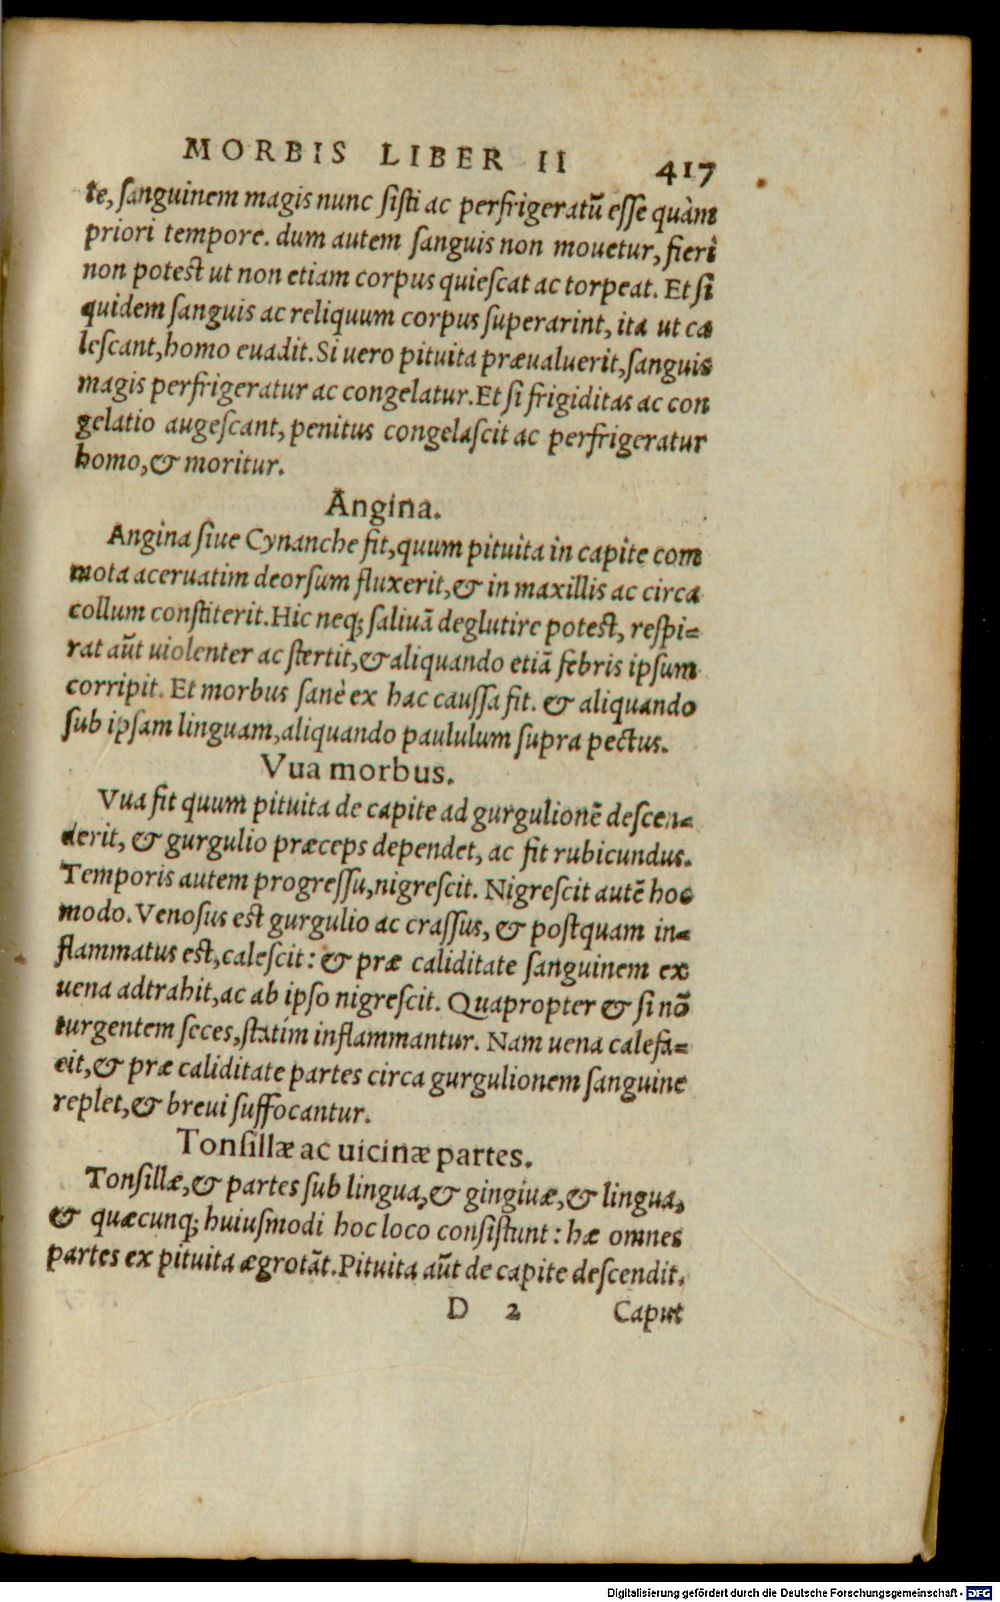 MORBIS LIBER II 417
te, sanguinem magis nunc sisti ac perfrigeratũ esse quàm
priori tempore. dum autem sanguis non mouetur, fieri
non potest ut non etiam corpus quiescat ac torpeat. Et si
quidem sanguis ac reliquum corpus superarint, ita ut ca
lescant, homo euadit. Si uero pituita præualuerit, sanguis
magis perfrigeratur ac congelatur. Et si frigiditas ac con
gelatio augescant, penitus congelascit ac perfrigeratur
homo, & moritur.
Angina.
Angina siue Cynanche fit, quum pituita in capite com
mota aceruatim deorsum fluxerit, & in maxillis ac circa
collum constiterit. Hic neq; saliuã deglutire potest, respi=
rat aũt uiolenter ac stertit, & aliquando etiã febris ipsum
corripit. Et morbus sanè ex hac caussa fit. & aliquando
sub ipsam linguam, aliquando paululum supra pectus.
Vua morbus.
Vua fit quum pituita de capite ad gurgulionẽ descen=
derit, & gurgulio præceps dependet, ac fit rubicundus.
Temporis autem progressu, nigrescit. Nigrescit autẽ hoc
modo. Venosus est gurgulio ac crassus, & postquam in=
flammatus est, calescit: & præ caliditate sanguinem ex
uena adtrahit, ac ab ipso nigrescit. Quapropter & si nõ
turgentem seces, statim inflammantur. Nam uena calefa=
cit, & præ caliditate partes circa gurgulionem sanguine
replet, & breui suffocantur.
Tonsillæ ac uicinæ partes.
Tonsillæ, & partes sub lingua, & gingiuæ, & lingua,
& quæcunq; huiusmodi hoc loco consistunt: hæ omnes
partes ex pituita ægrotãt. Pituita aũt de capite descendit.
D 2 Caput
Digitalisierung gefördert durch die Deutsche Forschungsgemeinschaft - DFG